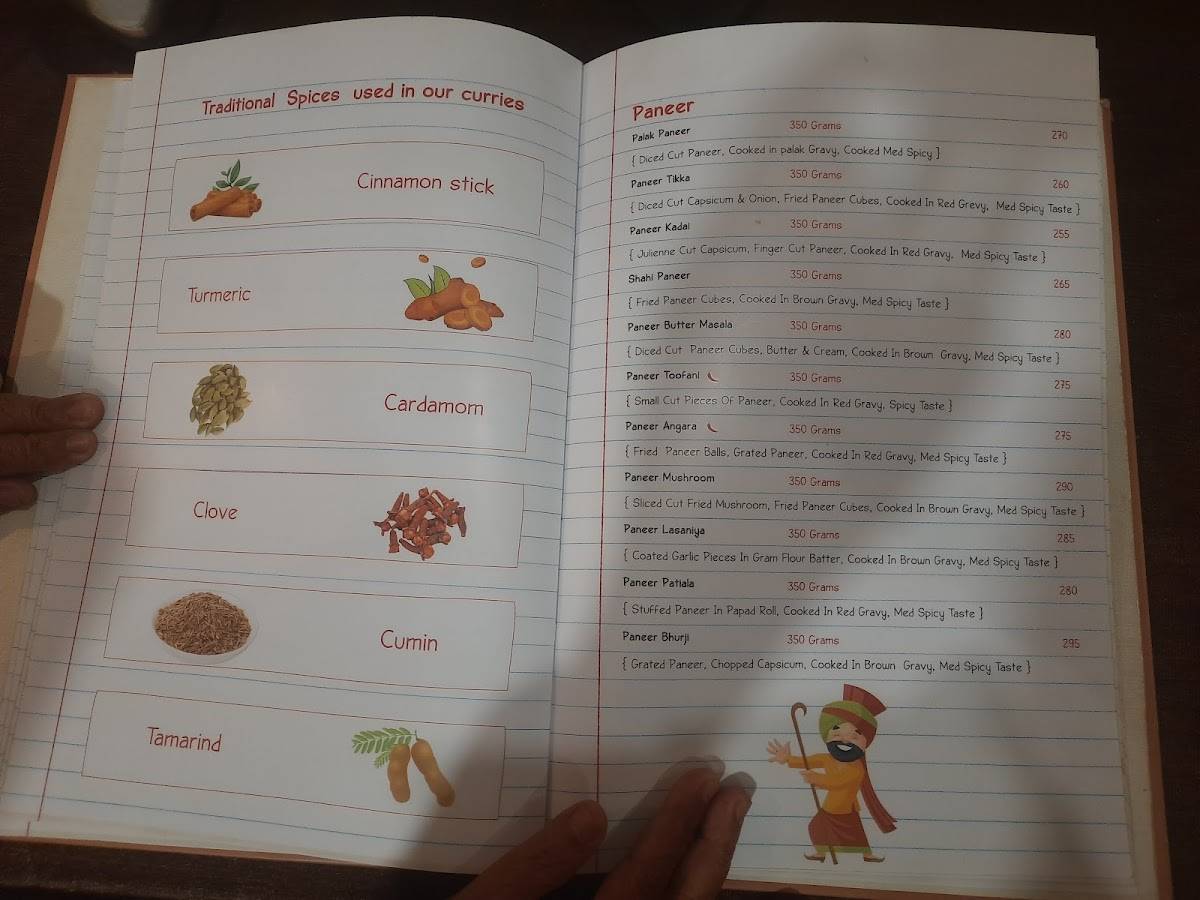 Traditional Spices used in our curries
Cinnamon stick
Turmeric
Cardamom
Clove
Cumin
Tamarind
Paneer
Palak Paneer 350 Grams 270
{ Diced Cut Paneer, Cooked in palak Gravy, Cooked Med Spicy }
Paneer Tikka 350 Grams 260
{ Diced Cut Capsicum & Onion, Fried Paneer Cubes, Cooked In Red Grevy, Med Spicy Taste }
Paneer Kadai 350 Grams 255
{ Julienne Cut Capsicum, Finger Cut Paneer, Cooked In Red Gravy, Med Spicy Taste }
Shahi Paneer 350 Grams 265
{ Fried Paneer Cubes, Cooked In Brown Gravy, Med Spicy Taste }
Paneer Butter Masala 350 Grams 280
{ Diced Cut Paneer Cubes, Butter & Cream, Cooked In Brown Gravy, Med Spicy Taste }
Paneer Toofani 350 Grams 275
{ Small Cut Pieces Of Paneer, Cooked In Red Gravy, Spicy Taste }
Paneer Angara 350 Grams 275
{ Fried Paneer Balls, Grated Paneer, Cooked In Red Gravy, Med Spicy Taste }
Paneer Mushroom 350 Grams 290
{ Sliced Cut Fried Mushroom, Fried Paneer Cubes, Cooked In Brown Gravy, Med Spicy Taste }
Paneer Lasaniya 350 Grams 285
{ Coated Garlic Pieces In Gram Flour Batter, Cooked In Brown Gravy, Med Spicy Taste }
Paneer Patiala 350 Grams 280
{ Stuffed Paneer In Papad Roll, Cooked In Red Gravy, Med Spicy Taste }
Paneer Bhurji 350 Grams 295
{ Grated Paneer, Chopped Capsicum, Cooked In Brown Gravy, Med Spicy Taste }